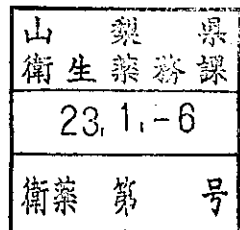 山梨県
衛生薬務課
23.1.-6
衛薬第 号